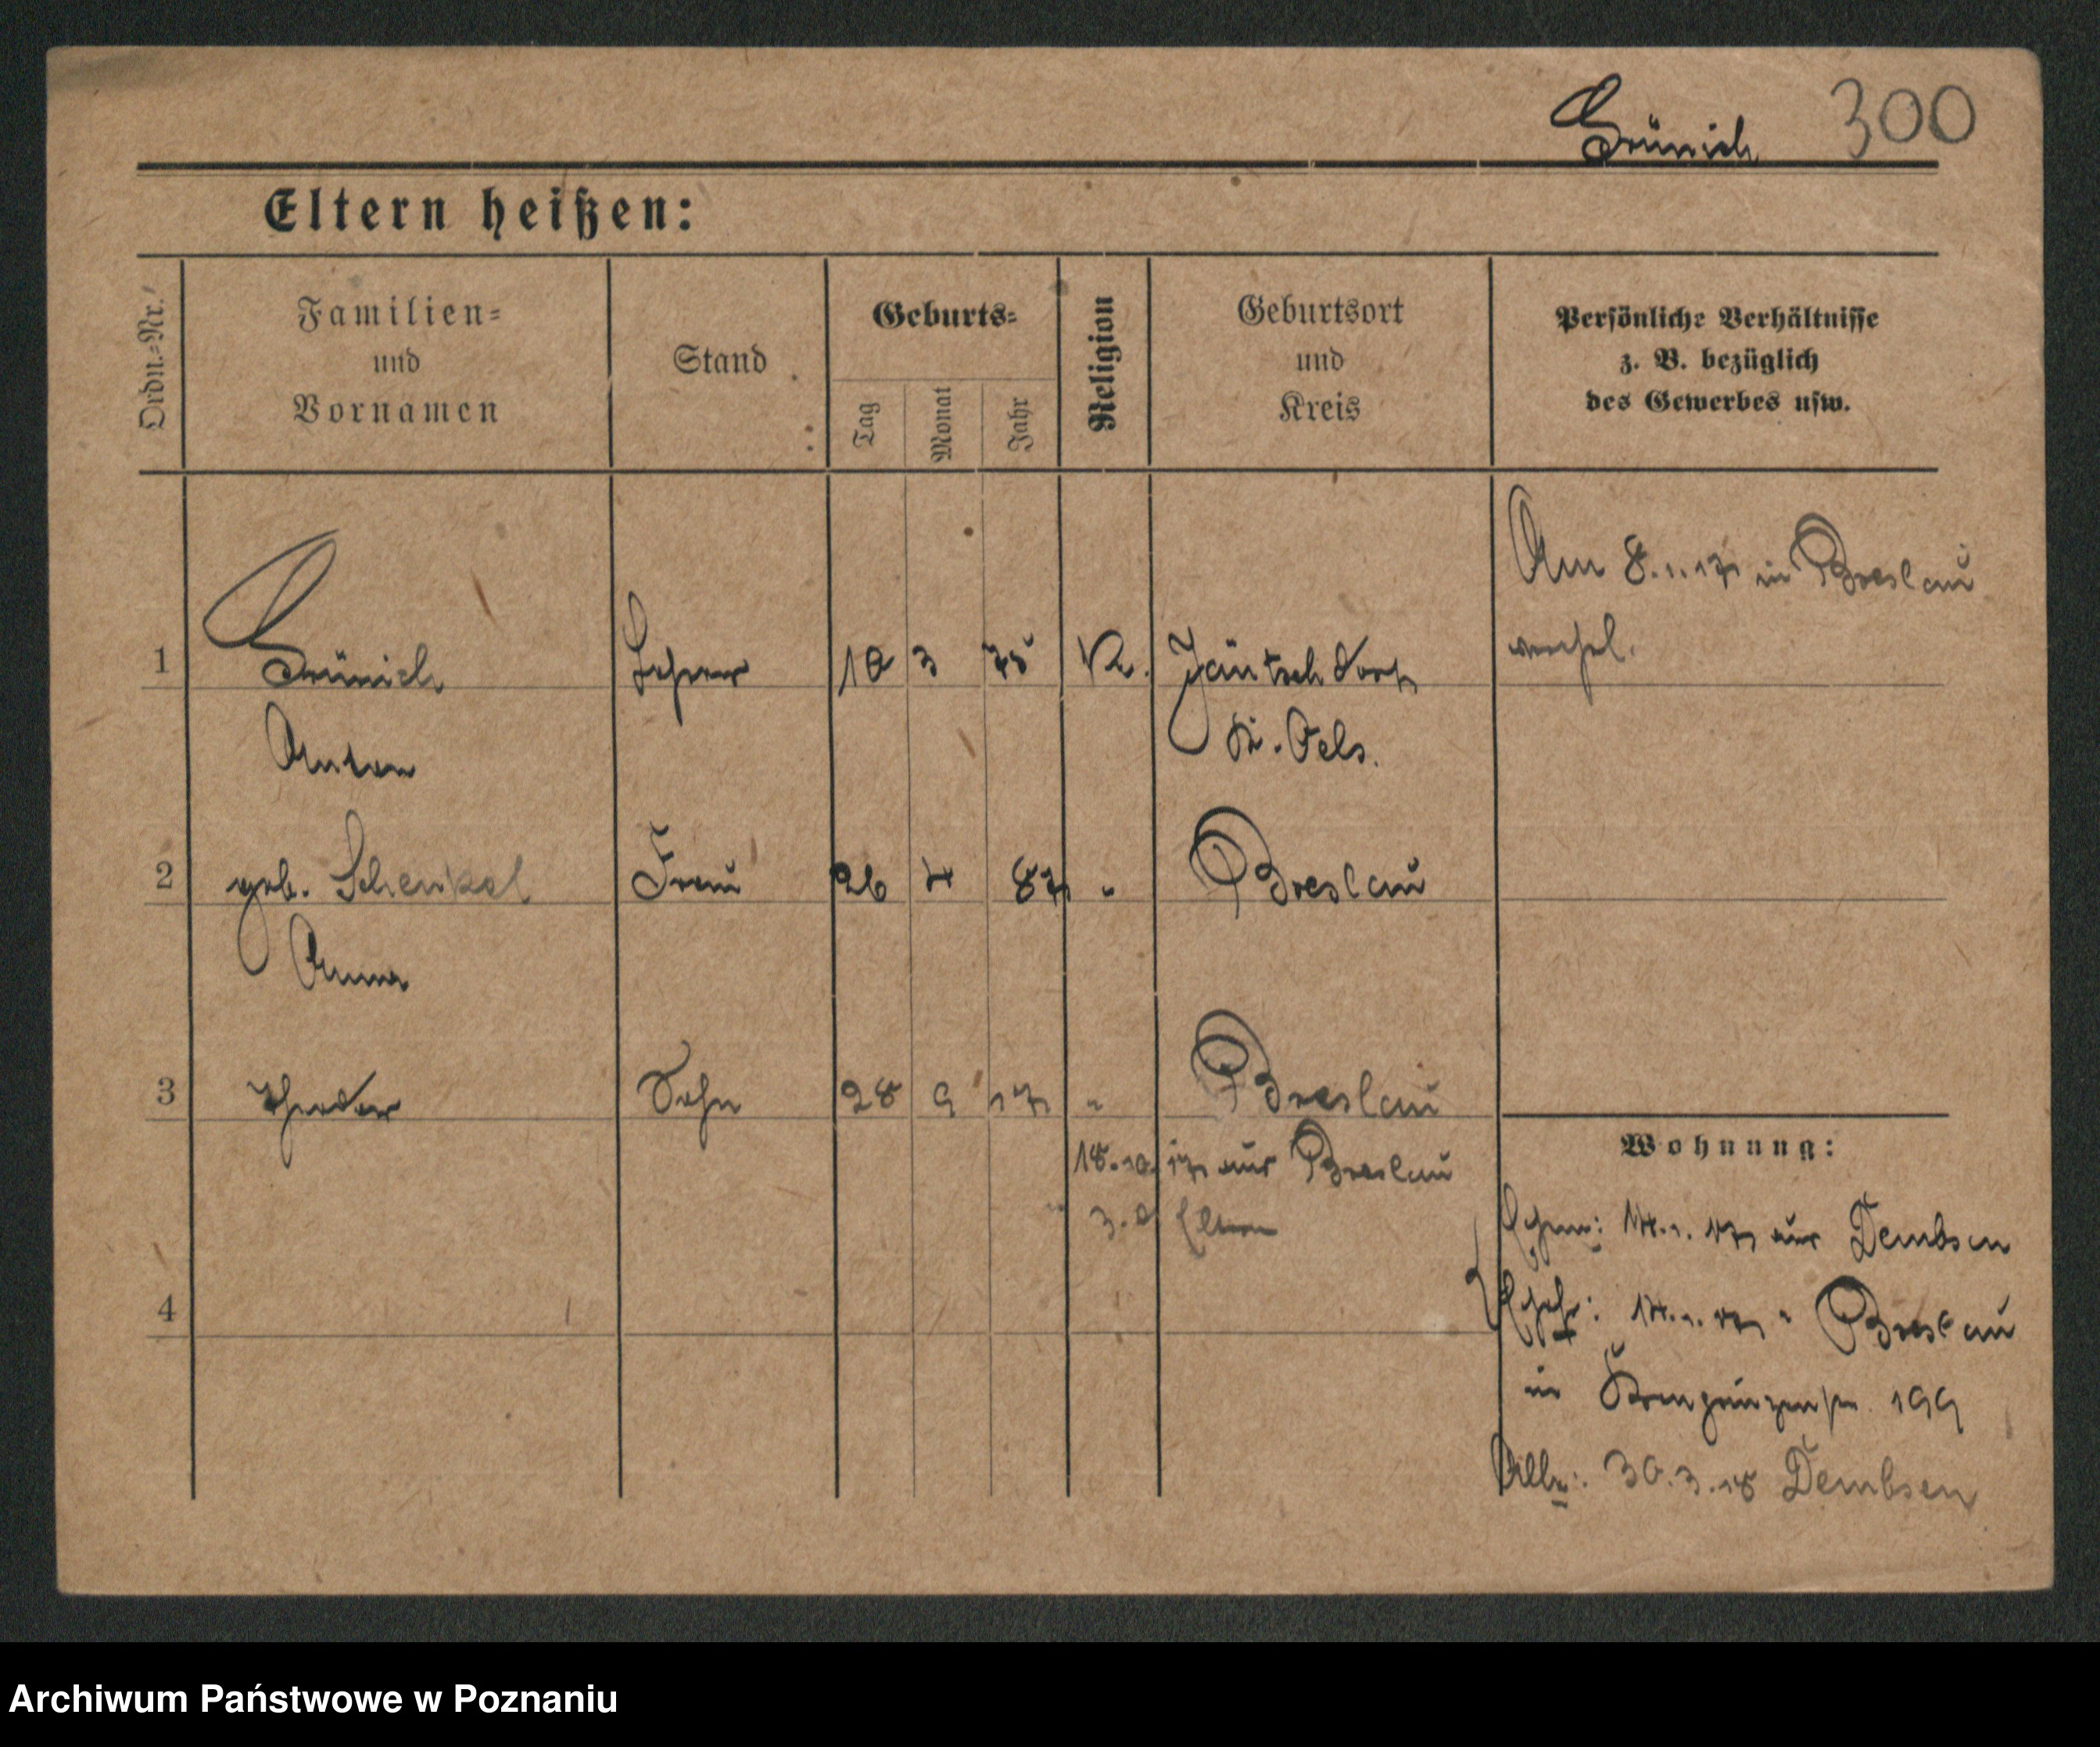 Grünich 300
Eltern heißen:
Ordn.-Nr.
Familien-
und
Vornamen
Stand
Geburts-
Tag
Monat
Jahr
Religion
Geburtsort
und
Kreis
Persönliche Verhältnisse
z. B. bezüglich
des Gewerbes usw.
Am 8.1.17 in Breslau
verehel.
1 Grünich Lehrer 10 3 75 K. Jäntschdorf
Anton Kr. Oels.
2 geb. Schenkel Frau 26 4 87 " Breslau
Anna
3 Theodor Sohn 28 9 17 " Breslau
18.10.17 aus Breslau
3. Eltern
Wohnung:
Ehem: 14.1.17 aus Dembsen
Ehefr: 14.1.17 " Breslau
4
in Kronprinzenstr. 199
Alle: 30.3.18 Dembsen
Archiwum Państwowe w Poznaniu